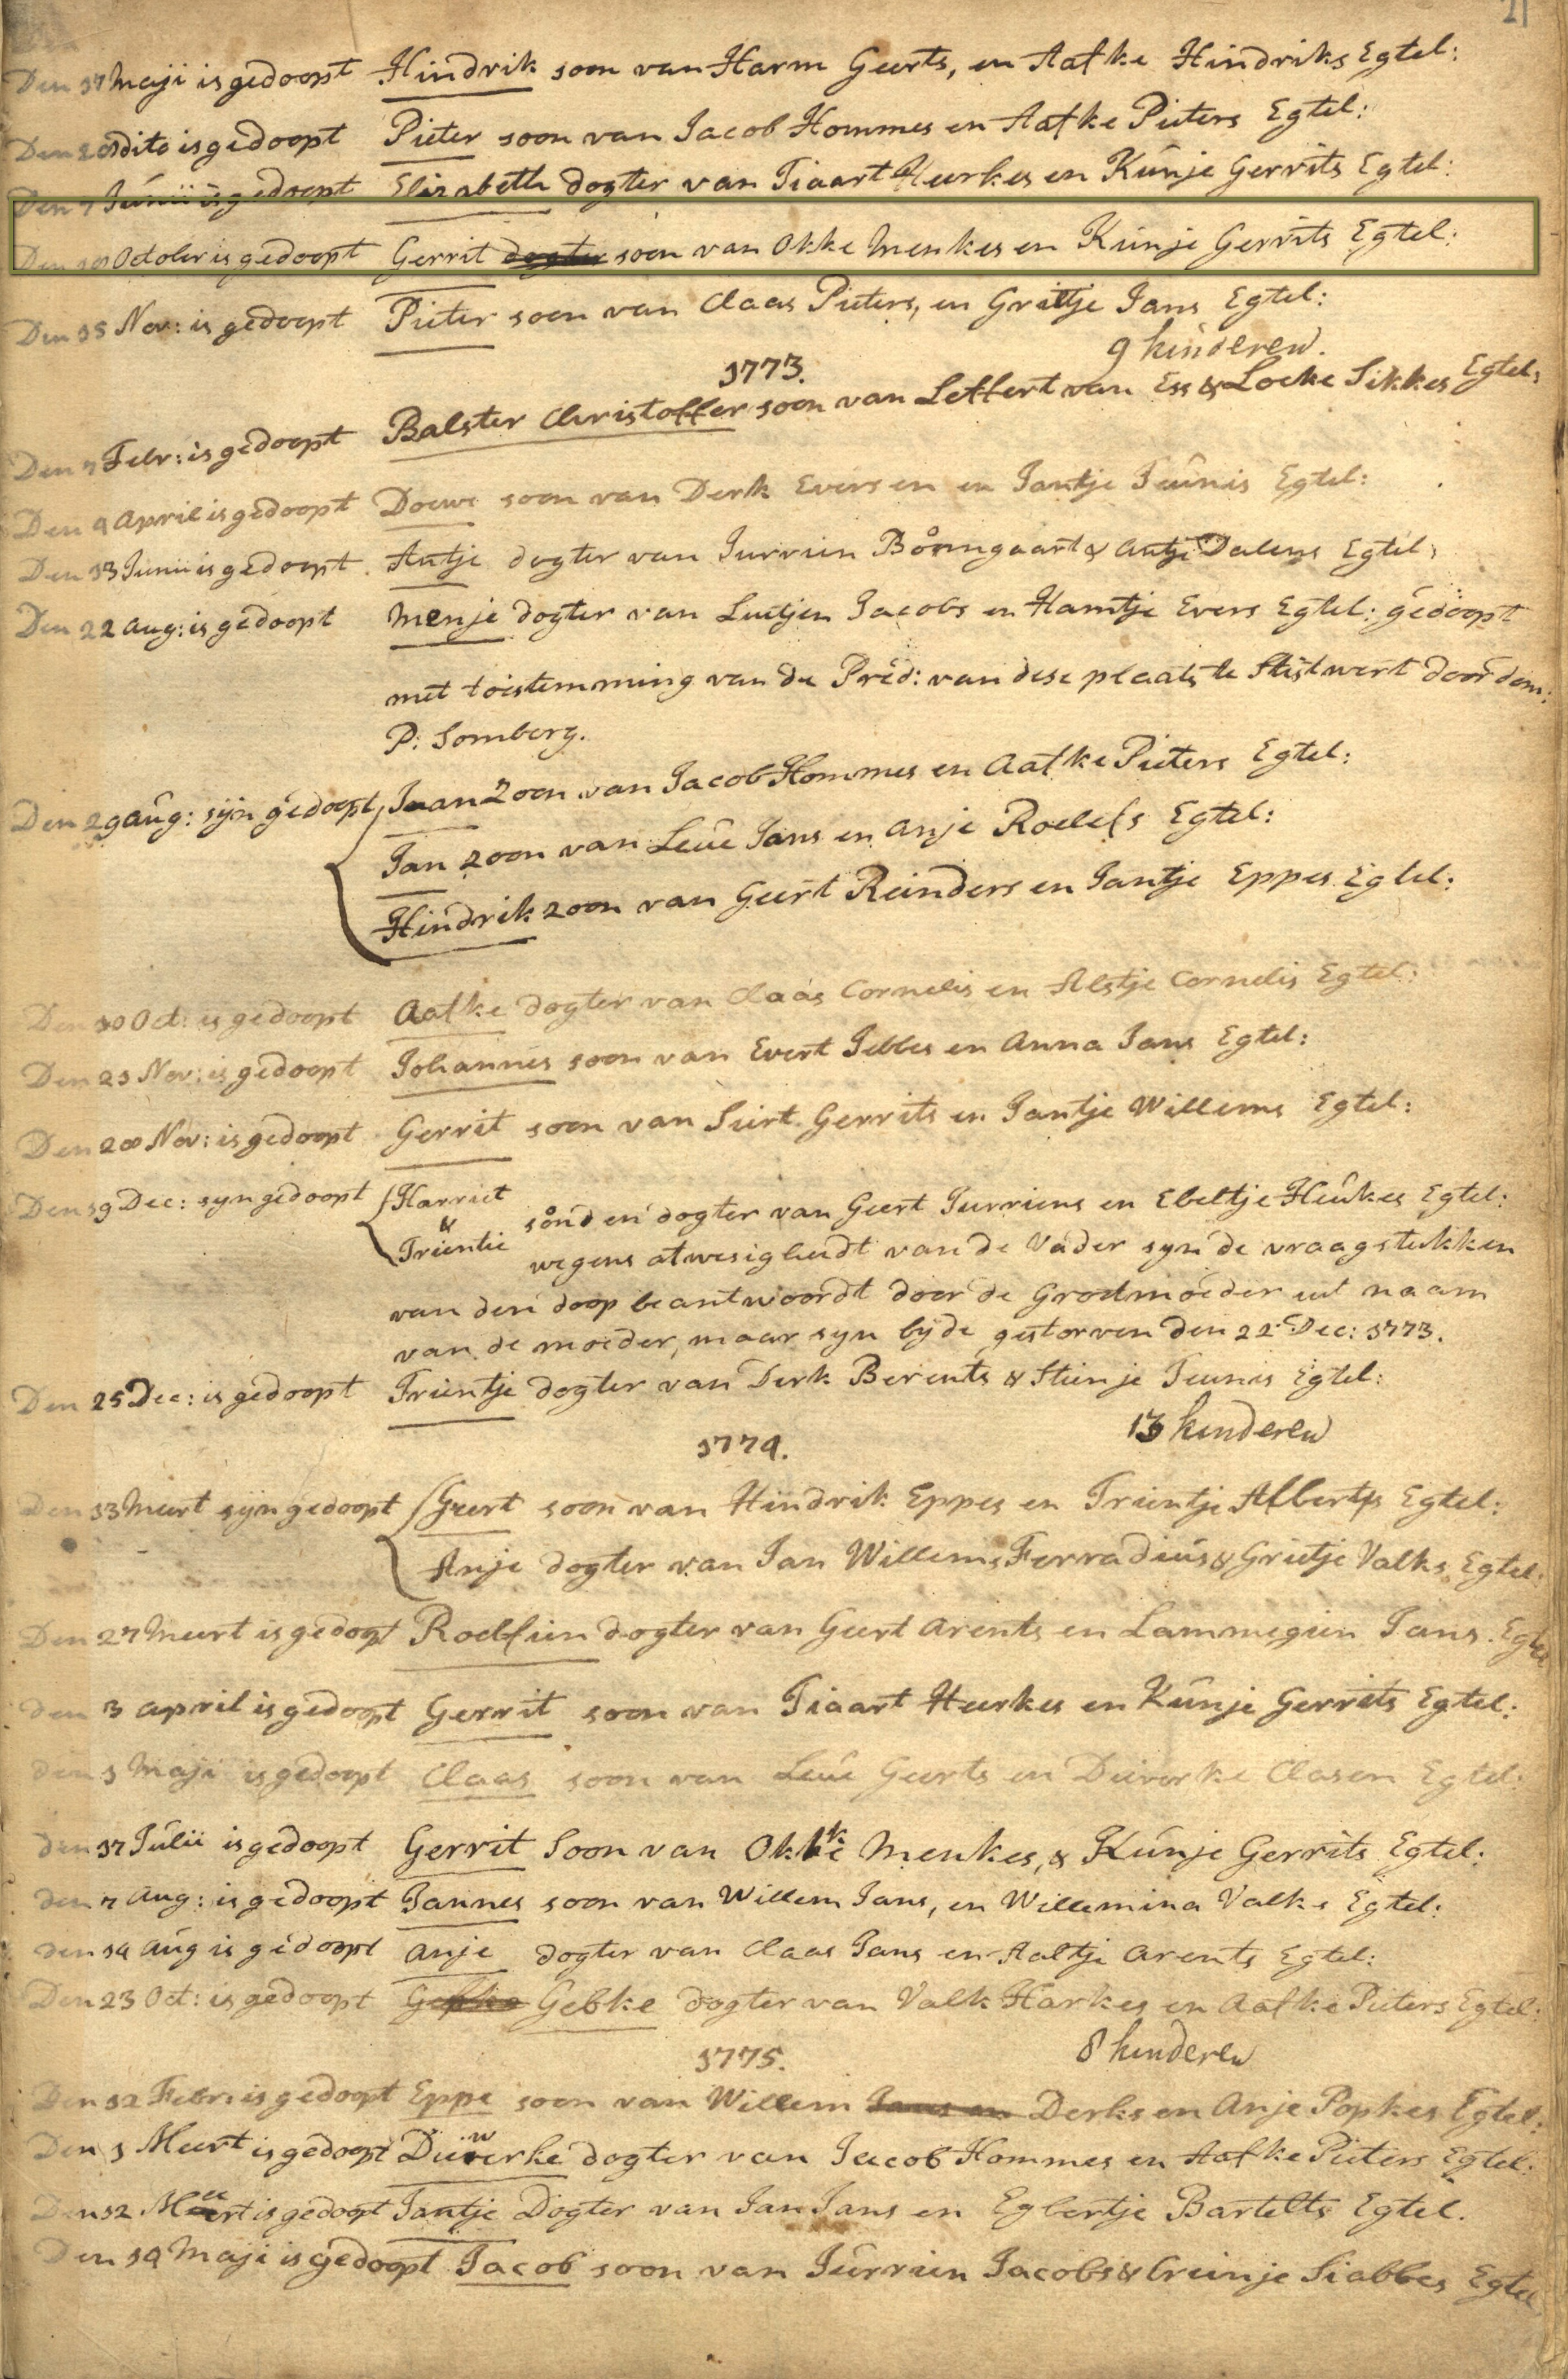 21
Den 17 Maji is gedoopt Hindrik soon van Harm Geerts, en Aafke Hindriks Egtel:
Den 28 dito is gedoopt Pieter soon van Jacob Hommes en Aafke Pieters Egtel:
Den 7 Junii is gedoopt Elisabeth dogter van Tiaart Heerkes en Kûnje Gerrits Egtel:
Den 18 October is gedoopt Gerrit dogter soon van Okke Menkes en Kûnje Gerrits Egtel:
Den 15 Nov: is gedoopt Pieter soon van Claas Pieters, en Grietje Jans Egtel:
9 kinderen.
1773.
Den 7 Febr: is gedoopt Balster Christoffer soon van Leffert van Ess & Locke Sikkes Egtel:
Den 4 April is gedoopt Doewe soon van Derk Eversen en Jantje Teûnis Egtel:
Den 13 Junii is gedoopt Antje dogter van Jurrien Bômgaart & Antje Dalens Egtel:
Den 22 Aug: is gedoopt Menje dogter van Luitjen Jacobs en Hamtje Evers Egtel: gedoopt
met toistemming van de Pred: van dese plaats te Stistwert door dom:
P: Somberg.
Den 29 Aûg: sijn gedoopt Jaan Zoon van Jacob Hommes en Aafke Pieters Egtel:
Jan zoon van Leûe Jans en Anje Roelefs Egtel:
Hindrik zoon van Geert Reinders en Jantje Eppes Egtel:
Den 10 Oct: is gedoopt Aafke dogter van Claas Cornelis en Alstje Cornelis Egtel:
Den 21 Nov: is gedoopt Johannes soon van Evert Jebbes en Anna Jans Egtel:
Den 28 Nov: is gedoopt Gerrit soon van Siert Gerrits en Jantje Willems Egtel:
Den 19 Dec: syn gedoopt Harriet
& sôn d en dogter van Geert Jurriens en Ebeltje Heûkes Egtel:
Trientie wegens afwesigheidt van de Vader syn de vraagstukken
van den doop beantwoordt door de Grootmoeder uit naam
van de moeder, maar syn byde gestorven den 22 Dec: 1773.
Den 25 Dec: is gedoopt Trientje dogter van Derk Berents & Stienje Teunis Egtel:
13 kinderen
1774.
Den 13 Meert sijn gedoopt Geert soon van Hindrik Eppes en Trientje Alberts Egtel:
Anje dogter van Jan Willems Ferradiûs & Grietje Valks Egtel:
Den 27 Meert is gedoopt Roelfien dogter van Geert Arents en Lammegien Jans Egtel
den 3 April is gedoopt Gerrit soon van Tiaart Heerkes en Kûnje Gerrits Egtel:
den 1 Maji is gedoopt Claas soon van Leûe Geerts en Dieverke Clasen Egtel:
den 17 Jûlii is gedoopt Gerrit Soon van Okke Menkes, & Kûnje Gerrits Egtel:
den 7 Aug: is gedoopt Jannes soon van Willem Jans, en Willemina Valks Egtel:
den 14 Aûg is gedoopt Anje dogter van Claas Jans en Aaltje Arents Egtel:
Den 23 Oct: is gedoopt Gebke dogter van Valk Harkes en Aafke Pieters Egtel:
8 kinderen
1775.
Den 12 Febr: is gedoopt Eppe soon van Willem Jans en Derks en Anje Popkes Egtel:
Den 5 Meert is gedoopt Diewerke dogter van Jacob Hommes en Aafke Pieters Egtel:
Den 12 Meert is gedoopt Jantje Dogter van Jan Jans en Egbertje Bartelts Egtel.
Den 14 Maji is gedoopt Jacob soon van Jûrrien Jacobs & Crienje Siabbes Egtel